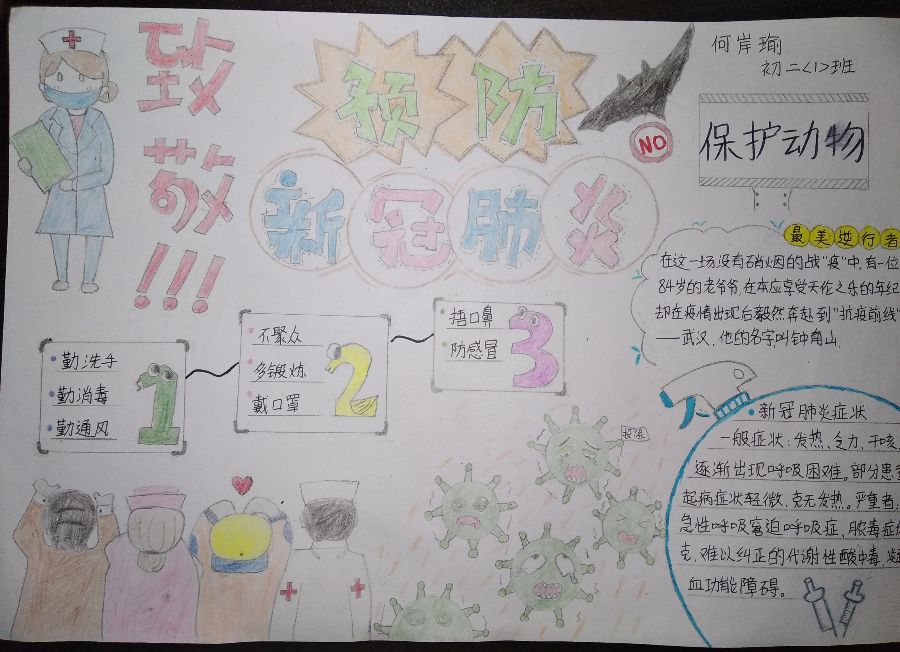 致敬!!!
预防
新冠肺炎
NO
何岸瑜
初二<1>班
保护动物
最美逆行者
在这一场没有硝烟的战“疫”中,有一位
84岁的老爷爷,在本应享受天伦之乐的年纪
却在疫情出现后毅然奔赴到“抗疫前线”
——武汉,他的名字叫钟南山.
勤洗手
勤消毒
勤通风
1
不聚众
多锻炼
戴口罩
2
捂口鼻
防感冒
3
投降
新冠肺炎症状
一般症状:发热、乏力、干咳,
逐渐出现呼吸困难。部分患者
起病症状轻微,竟无发热。严重者,
急性呼吸窘迫呼吸症,脓毒症
克,难以纠正的代谢性酸中毒,
血功能障碍。